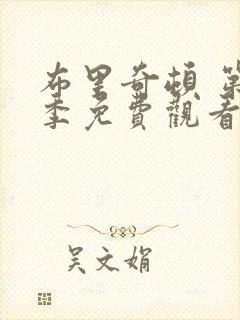 布里奇頓 第
季免費觀看
吳文娟